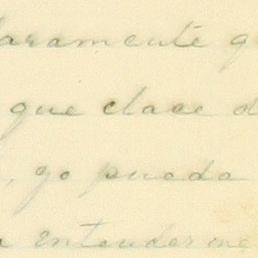 laramente q
que clase d
, yo pueda
a entenderme